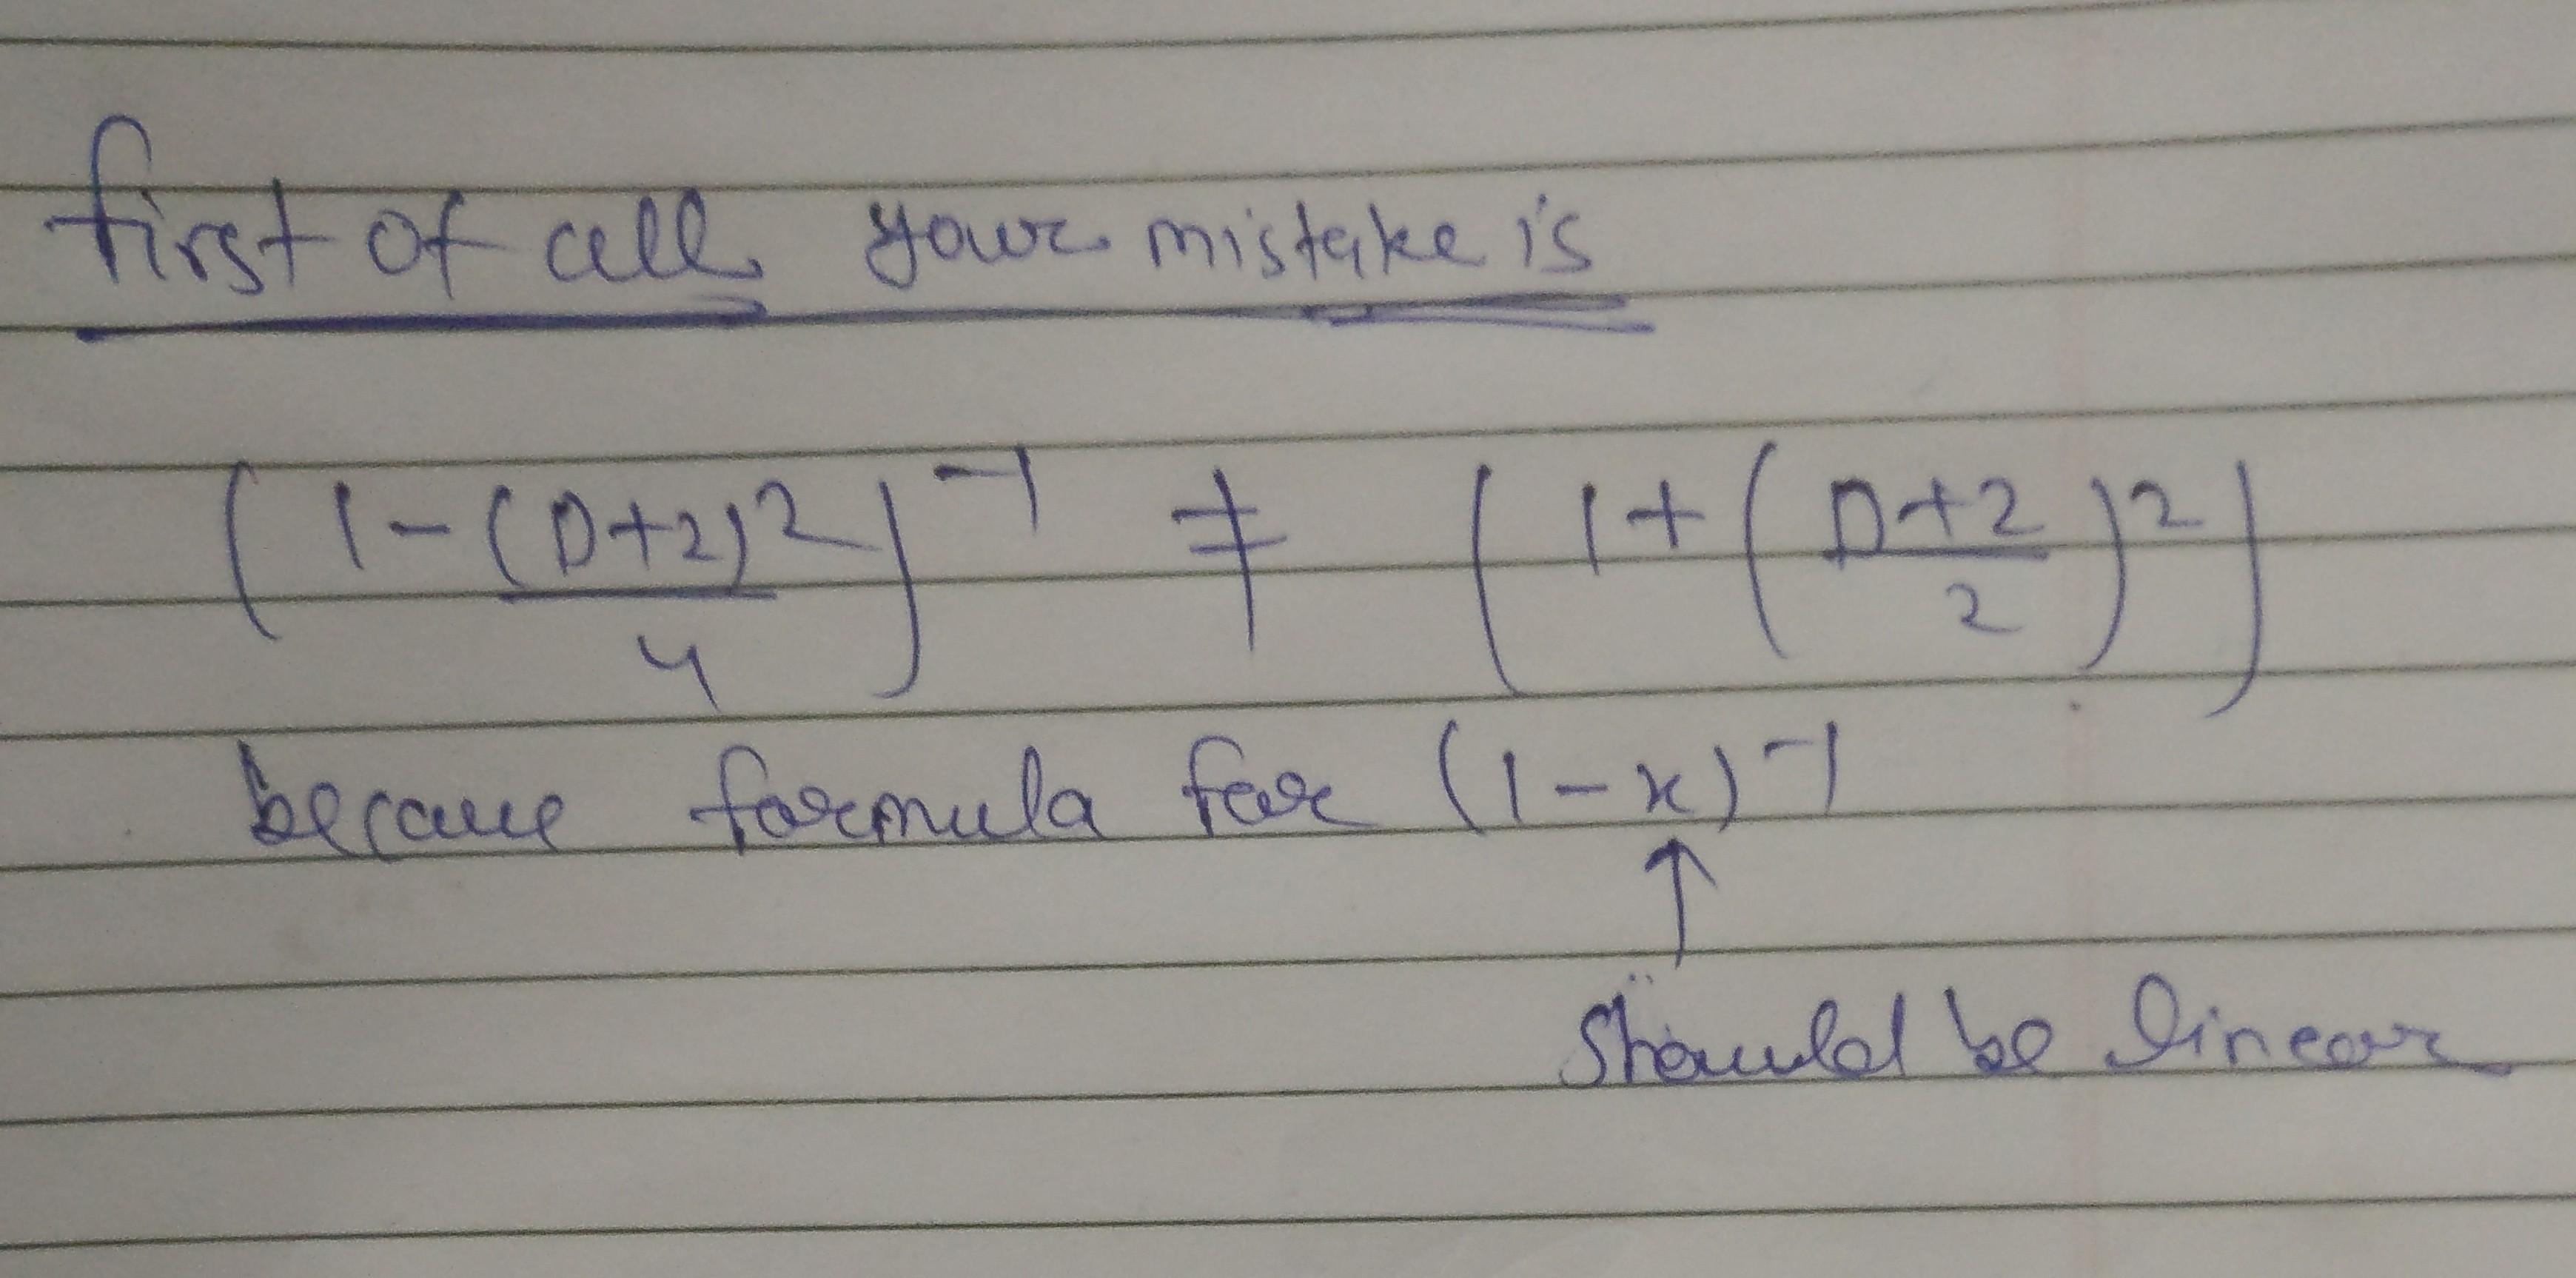 first of all your mistake is
(1-(D+2)²/4)⁻¹ ≠ (1+(D+2/2)²)
because formula for (1-x)⁻¹
↑
should be linear